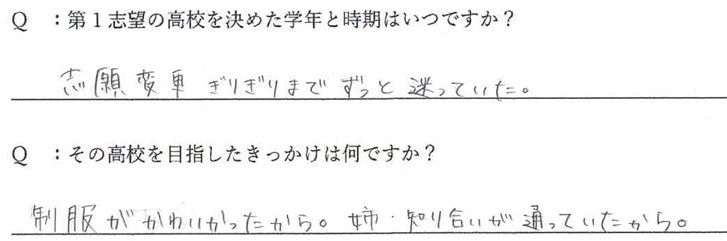 Q ：第１志望の高校を決めた学年と時期はいつですか？
志願変更ぎりぎりまでずっと迷っていた。
Q ：その高校を目指したきっかけは何ですか？
制服がかわいかったから。姉・知り合いが通っていたから。